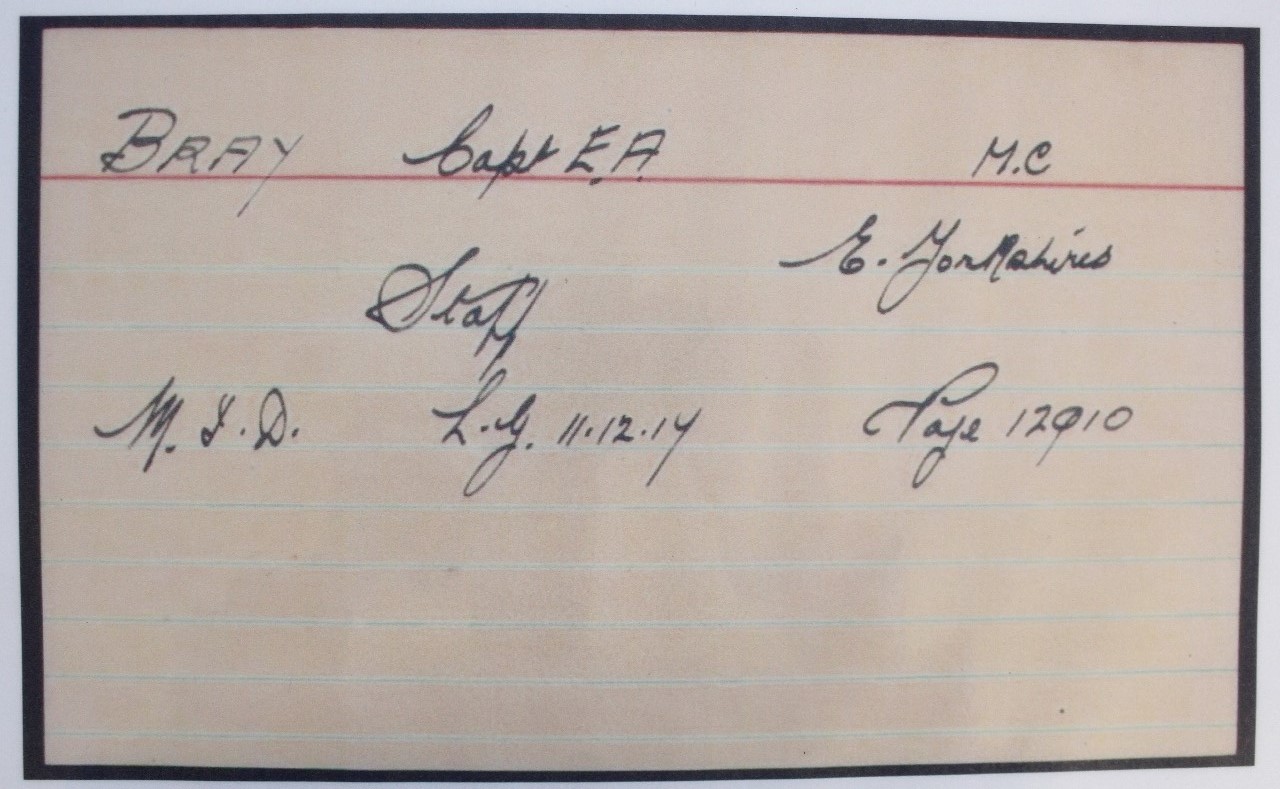 BRAY Capt E.A. M.C
E. Yorkshires
Staff
M.I.D. L.G. 11.12.17 Page 12910